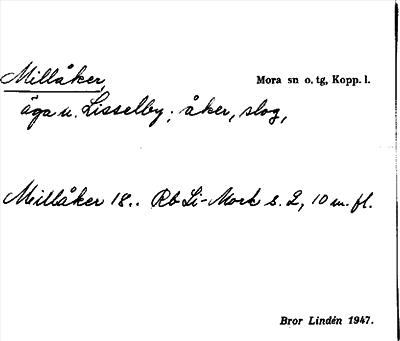 Millåker, Mora sn o. tg, Kopp. l.
äga u. Lisselby; åker, slog,
Meillåker 18.. Rb Li-Mork s. 2, 10 m. fl.
Bror Lindén 1947.